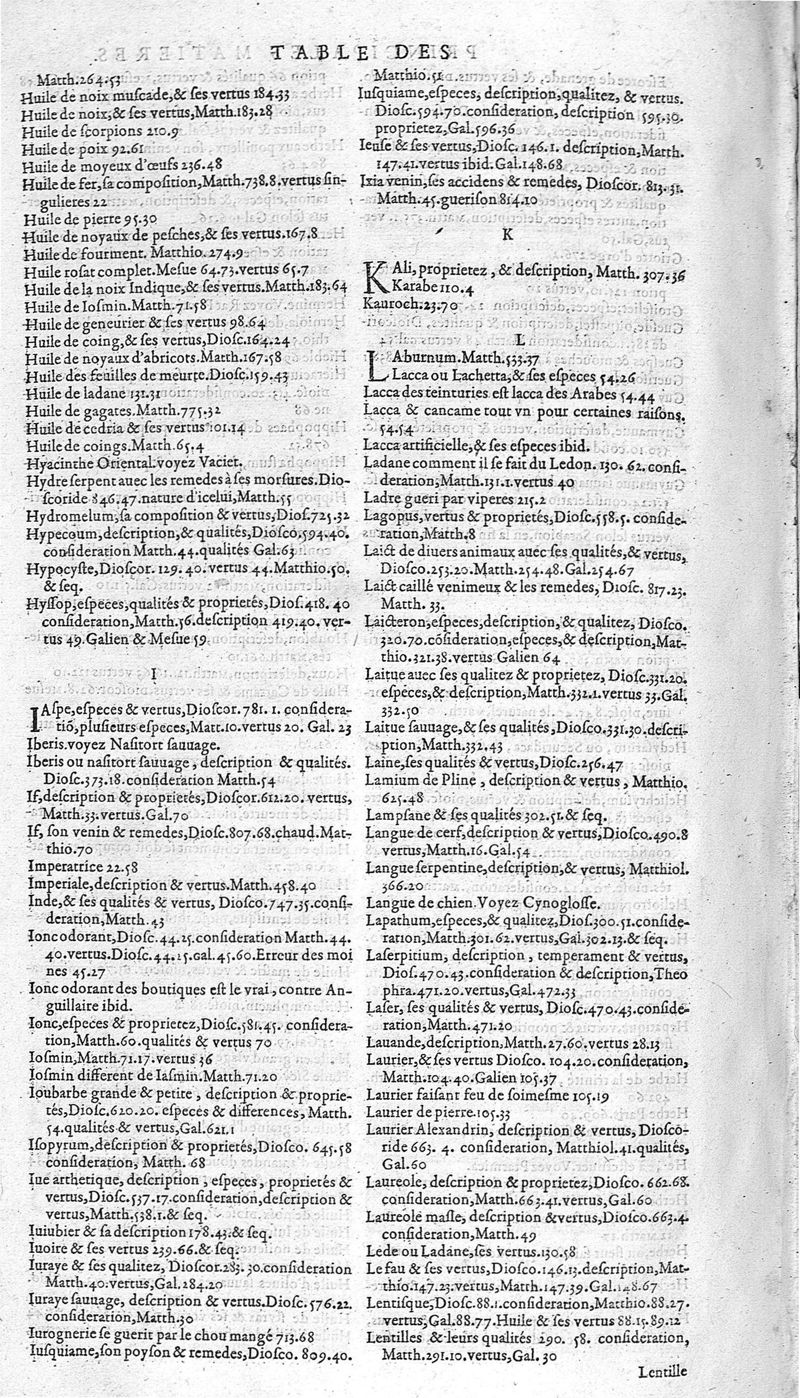 TABLE DES
Matth.264.53
Huile de noix muscade,& ses vertus 184.33
Huile de noix,& ses vertus,Matth.183.28
Huile de scorpions 210.9
Huile de poix 92.61
Huile de moyeux d'œufs 236.48
Huile de fer,sa composition,Matth.738.8.vertus sin-
gulieres 22
Huile de pierre 95.30
Huile de noyaux de pesches,& ses vertus.167.8
Huile de fourment. Matthio.274.9
Huile rosat complet.Mesue 64.73.vertus 65.7
Huile de la noix Indique,& ses vertus.Matth.183.64
Huile de Iosmin.Matth.71.58
Huile de geneurier & ses vertus 98.64
Huile de coing,& ses vertus,Diosc.164.24
Huile de noyaux d'abricots.Matth.167.58
Huile des feuilles de meurte.Diosc.159.43
Huile de ladane 131.31
Huile de gagates.Matth.775.32
Huile de cedria & ses vertus 101.14
Huile de coings.Matth.65.4
Hyacinthe Oriental.voyez Vaciet.
Hydre serpent auec les remedes à ses morsures.Dio-
scoride 846.47.nature d'icelui,Matth.55
Hydromelum,sa composition & vertus,Dios.725.32
Hypecoum,description,& qualités,Diosco.594.40.
consideration Matth.44.qualités Gal.63
Hypocyste,Dioscor.129.40.vertus 44.Matthio.50.
& seq.
Hyssop,especes,qualités & proprietés,Dios.418.40
consideration,Matth.56.description 419.40.ver-
tus 49.Galien & Mesue 59
I
IAspe,especes & vertus,Dioscor.781.1.considera-
tiõ,plusieurs especes,Matt.10.vertus 20. Gal. 23
Iberis.voyez Nasitort sauuage.
Iberis ou nasitort sauuage, description & qualités.
Diosc.373.18.consideration Matth.54
If,description & proprietés,Dioscor.612.20. vertus,
Matth.33.vertus.Gal.70
If, son venin & remedes,Diosc.807.68.chaud.Mat-
thio.70
Imperatrice 22.58
Imperiale,description & vertus.Matth.458.40
Inde,& ses qualités & vertus, Diosco.747.35.consi-
deration,Matth.43
Ionc odorant,Diosc.44.25.consideration Matth.44.
40.vertus.Diosc.44.25.gal.45.60.Erreur des moi
nes 45.27
Ionc odorant des boutiques est le vrai, contre An-
guillaire ibid.
Ionc,especes & proprietez,Diosc.581.45. considera-
tion,Matth.60.qualités & vertus 70
Iosmin,Matth.71.17.vertus 36
Iosmin different de Iasmin.Matth.71.20
Ioubarbe grande & petite, description & proprie-
tés,Diosc.620.20. especes & differences, Matth.
54.qualités & vertus,Gal.621.1
Isopyrum,description & proprietés,Diosco. 645.58
consideration, Matth. 68
Iue arthetique, description, especes, proprietés &
vertus,Diosc.537.17.consideration,description &
vertus,Matth.538.1.& seq.
Iuiubier & sa description 178.43.& seq.
Iuoire & ses vertus 239.66.& seq.
Iuraye & ses qualitez, Dioscor.283.30.consideration
Matth.40.vertus,Gal.284.20
Iuraye sauuage, description & vertus.Diosc.576.22.
consideration,Matth.30
Iurognerie se guerit par le chou mangé 713.68
Iusquiame,son poyson & remedes,Diosco. 809.40.
Matthio.51
Iusquiame,especes, description,qualitez, & vertus.
Diosc.594.70.consideration, description 595.30.
proprietez,Gal.596.36
Ieuse & ses vertus,Diosc. 146.1. description,Matth.
147.41.vertus ibid.Gal.148.68
Ixia venin,ses accidens & remedes, Dioscor. 813.31.
Matth.45.guerison 814.10
K
KAli, proprietez, & description, Matth. 307.36
Karabe 110.4
Kauroch.23.70
L
LAburnum.Matth.533.37
Lacca ou Lachetta,& ses especes 54.26
Lacca des teinturies est lacca des Arabes 54.44
Lacca & cancame tout vn pour certaines raisons.
54.54
Lacca artificielle,& ses especes ibid.
Ladane comment il se fait du Ledon. 130. 62.consi-
deration,Matth.131.1.vertus 40
Ladre gueri par viperes 215.2
Lagopus,vertus & proprietés,Diosc.558.5. conside-
ration,Matth.8
Laict de diuers animaux auec ses qualités,& vertus,
Diosco.253.20.Matth.254.48.Gal.254.67
Laict caillé venimeux & les remedes, Diosc. 817.23.
Matth. 33.
Laicteron,especes,description, & qualitez, Diosco.
320.70.cõsideration,especes,& description,Mat-
thio.321.38.vertus Galien 64
Laitue auec ses qualitez & proprietez, Diosc.331.20.
especes,& description,Matth.332.1.vertus 33.Gal.
332.50
Laitue sauuage,& ses qualités,Diosco.331.30.descri-
ption,Matth.332.43
Laine,ses qualités & vertus,Diosc.256.47
Lamium de Pline, description & vertus, Matthio.
625.48
Lampsane & ses qualités 302.51.& seq.
Langue de cerf,description & vertus,Diosco.490.8
vertus,Matth.16.Gal.54
Langue serpentine,description,& vertus, Matthiol.
366.20
Langue de chien.Voyez Cynoglosse.
Lapathum,especes,& qualitez,Dios.300.51.conside-
ration,Matth.301.62.vertus,Gal.302.13.& seq.
Laserpitium, description, temperament & vertus,
Dios.470.43.consideration & description,Theo
phra.471.20.vertus,Gal.472.33
Laser, ses qualités & vertus, Diosc.470.43.conside-
ration,Matth.471.20
Lauande,description,Matth.27.60.vertus 28.13
Laurier,& ses vertus Diosco. 104.20.consideration,
Matth.104.40.Galien 105.37
Laurier faisant feu de soimesme 105.19
Laurier de pierre.105.33
Laurier Alexandrin, description & vertus, Diosco-
ride 663. 4. consideration, Matthiol.41.qualités,
Gal.60
Laureole, description & proprietez,Diosco. 662.68.
consideration,Matth.663.41.vertus,Gal.60
Laureole masle, description &vertus,Diosco.663.4.
consideration,Matth.49
Lede ou Ladane,ses vertus.130.58
Le fau & ses vertus,Diosco.146.13.description,Mat-
thio.147.23.vertus,Matth.147.39.Gal.148.67
Lentisque,Diosc.88.1.consideration,Matthio.88.27.
vertus,Gal.88.77.Huile & ses vertus 88.15.89.12
Lentilles & leurs qualités 290. 58. consideration,
Matth.291.10.vertus,Gal. 30
Lentille